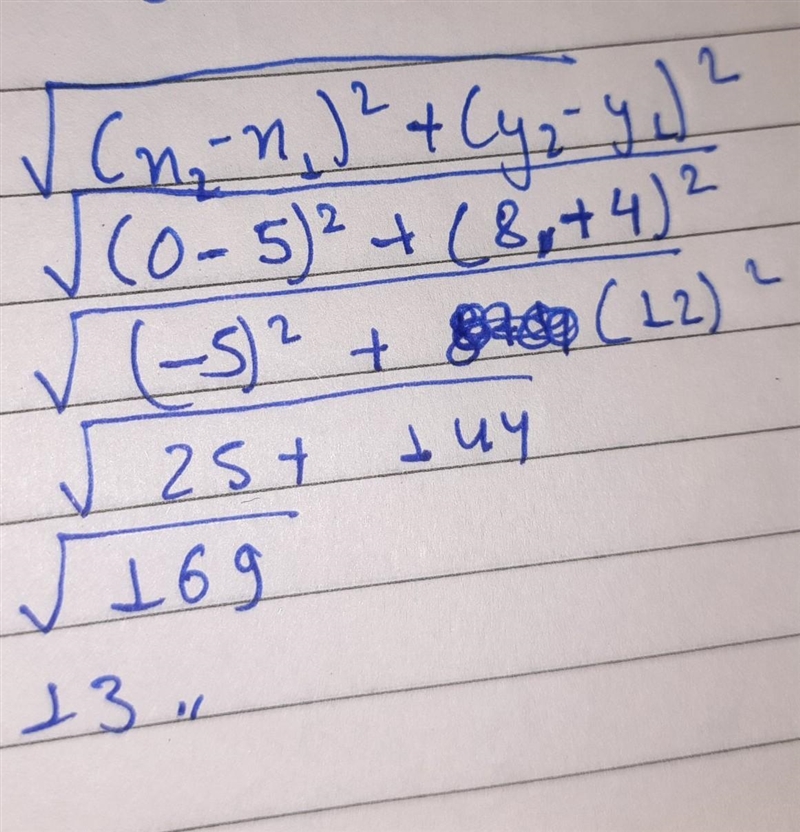 √(x₂-x₁)² + (y₂-y₁)²
√(0-5)² + (8+4)²
√(-5)² + (12)²
√25+ 144
√169
13 〃